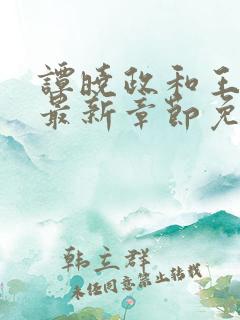 谭晓政和王
最新章节免
韩立群
未经同意禁止转载